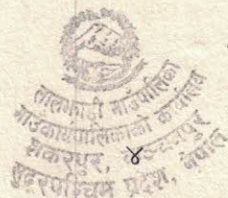 लालझाडी गाउँपालिका
गाउँकार्यपालिकाको कार्यालय
शंकरपुर, ४ कञ्चनपुर
सुदूरपश्चिम प्रदेश, नेपाल